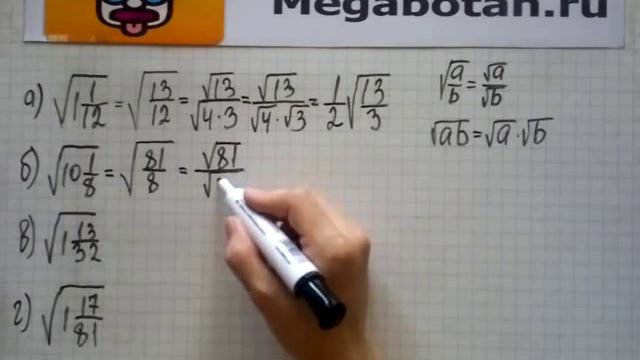 Megabotan.ru
а) √(1 1/12) = √(13/12) = √13/√(4·3) = √13/(√4·√3) = 1/2 √(13/3)
√(a/b) = √a/√b
√ab = √a·√b
б) √(10 1/8) = √(81/8) = √81/√
в) √(1 13/32)
г) √(1 17/81)